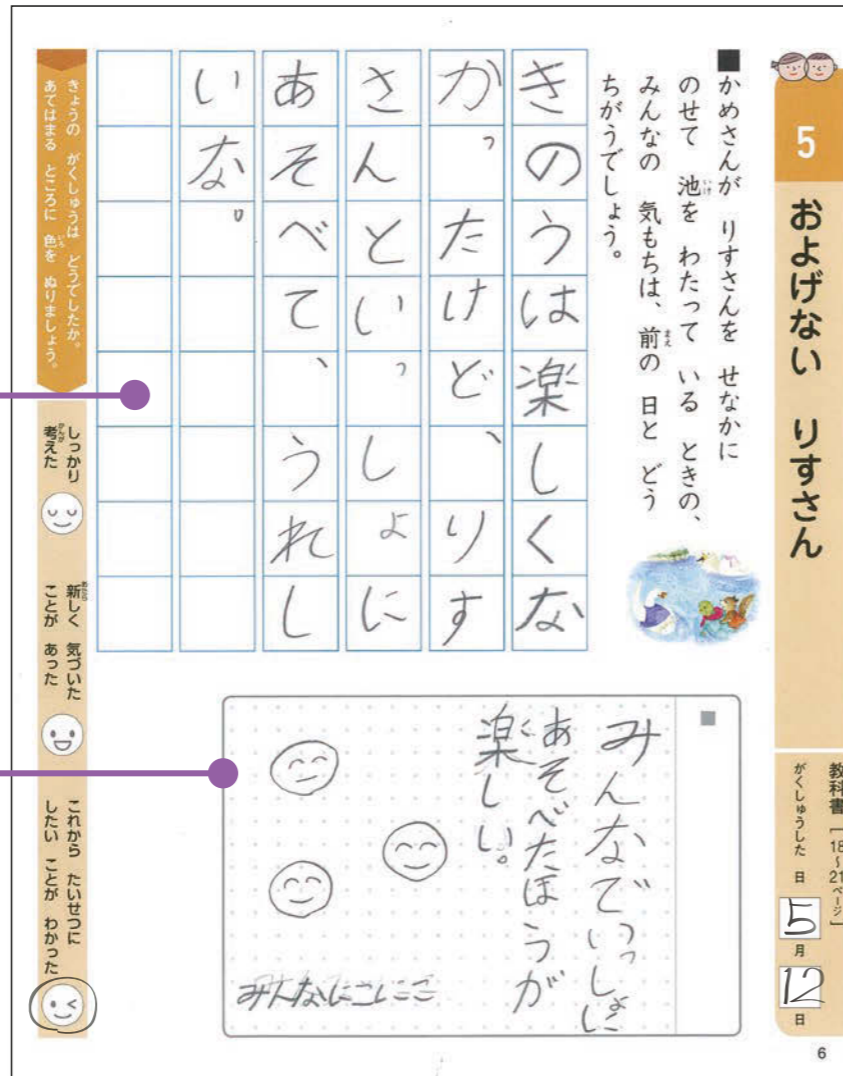 5
およげない りすさん
教科書［18~21ページ］
がくしゅうした 日 5月 12日
■かめさんが りすさんを せなかに
のせて 池を わたって いる ときの、
みんなの 気もちは、前の 日と どう
ちがうでしょう。
いけ
まえ
きのうは楽しくな
かったけど、りす
さんといっしょに
あそべて、うれし
いな。
■
みんなでいっしょに
あそべたほうが
楽しい。
みんなにこにこ
きょうの がくしゅうは どうでしたか。
あてはまる ところに 色を ぬりましょう。
いろ
しっかり
考えた
かんが
新しく 気づいた
ことが あった
あたら
これから たいせつに
したい ことが わかった
6